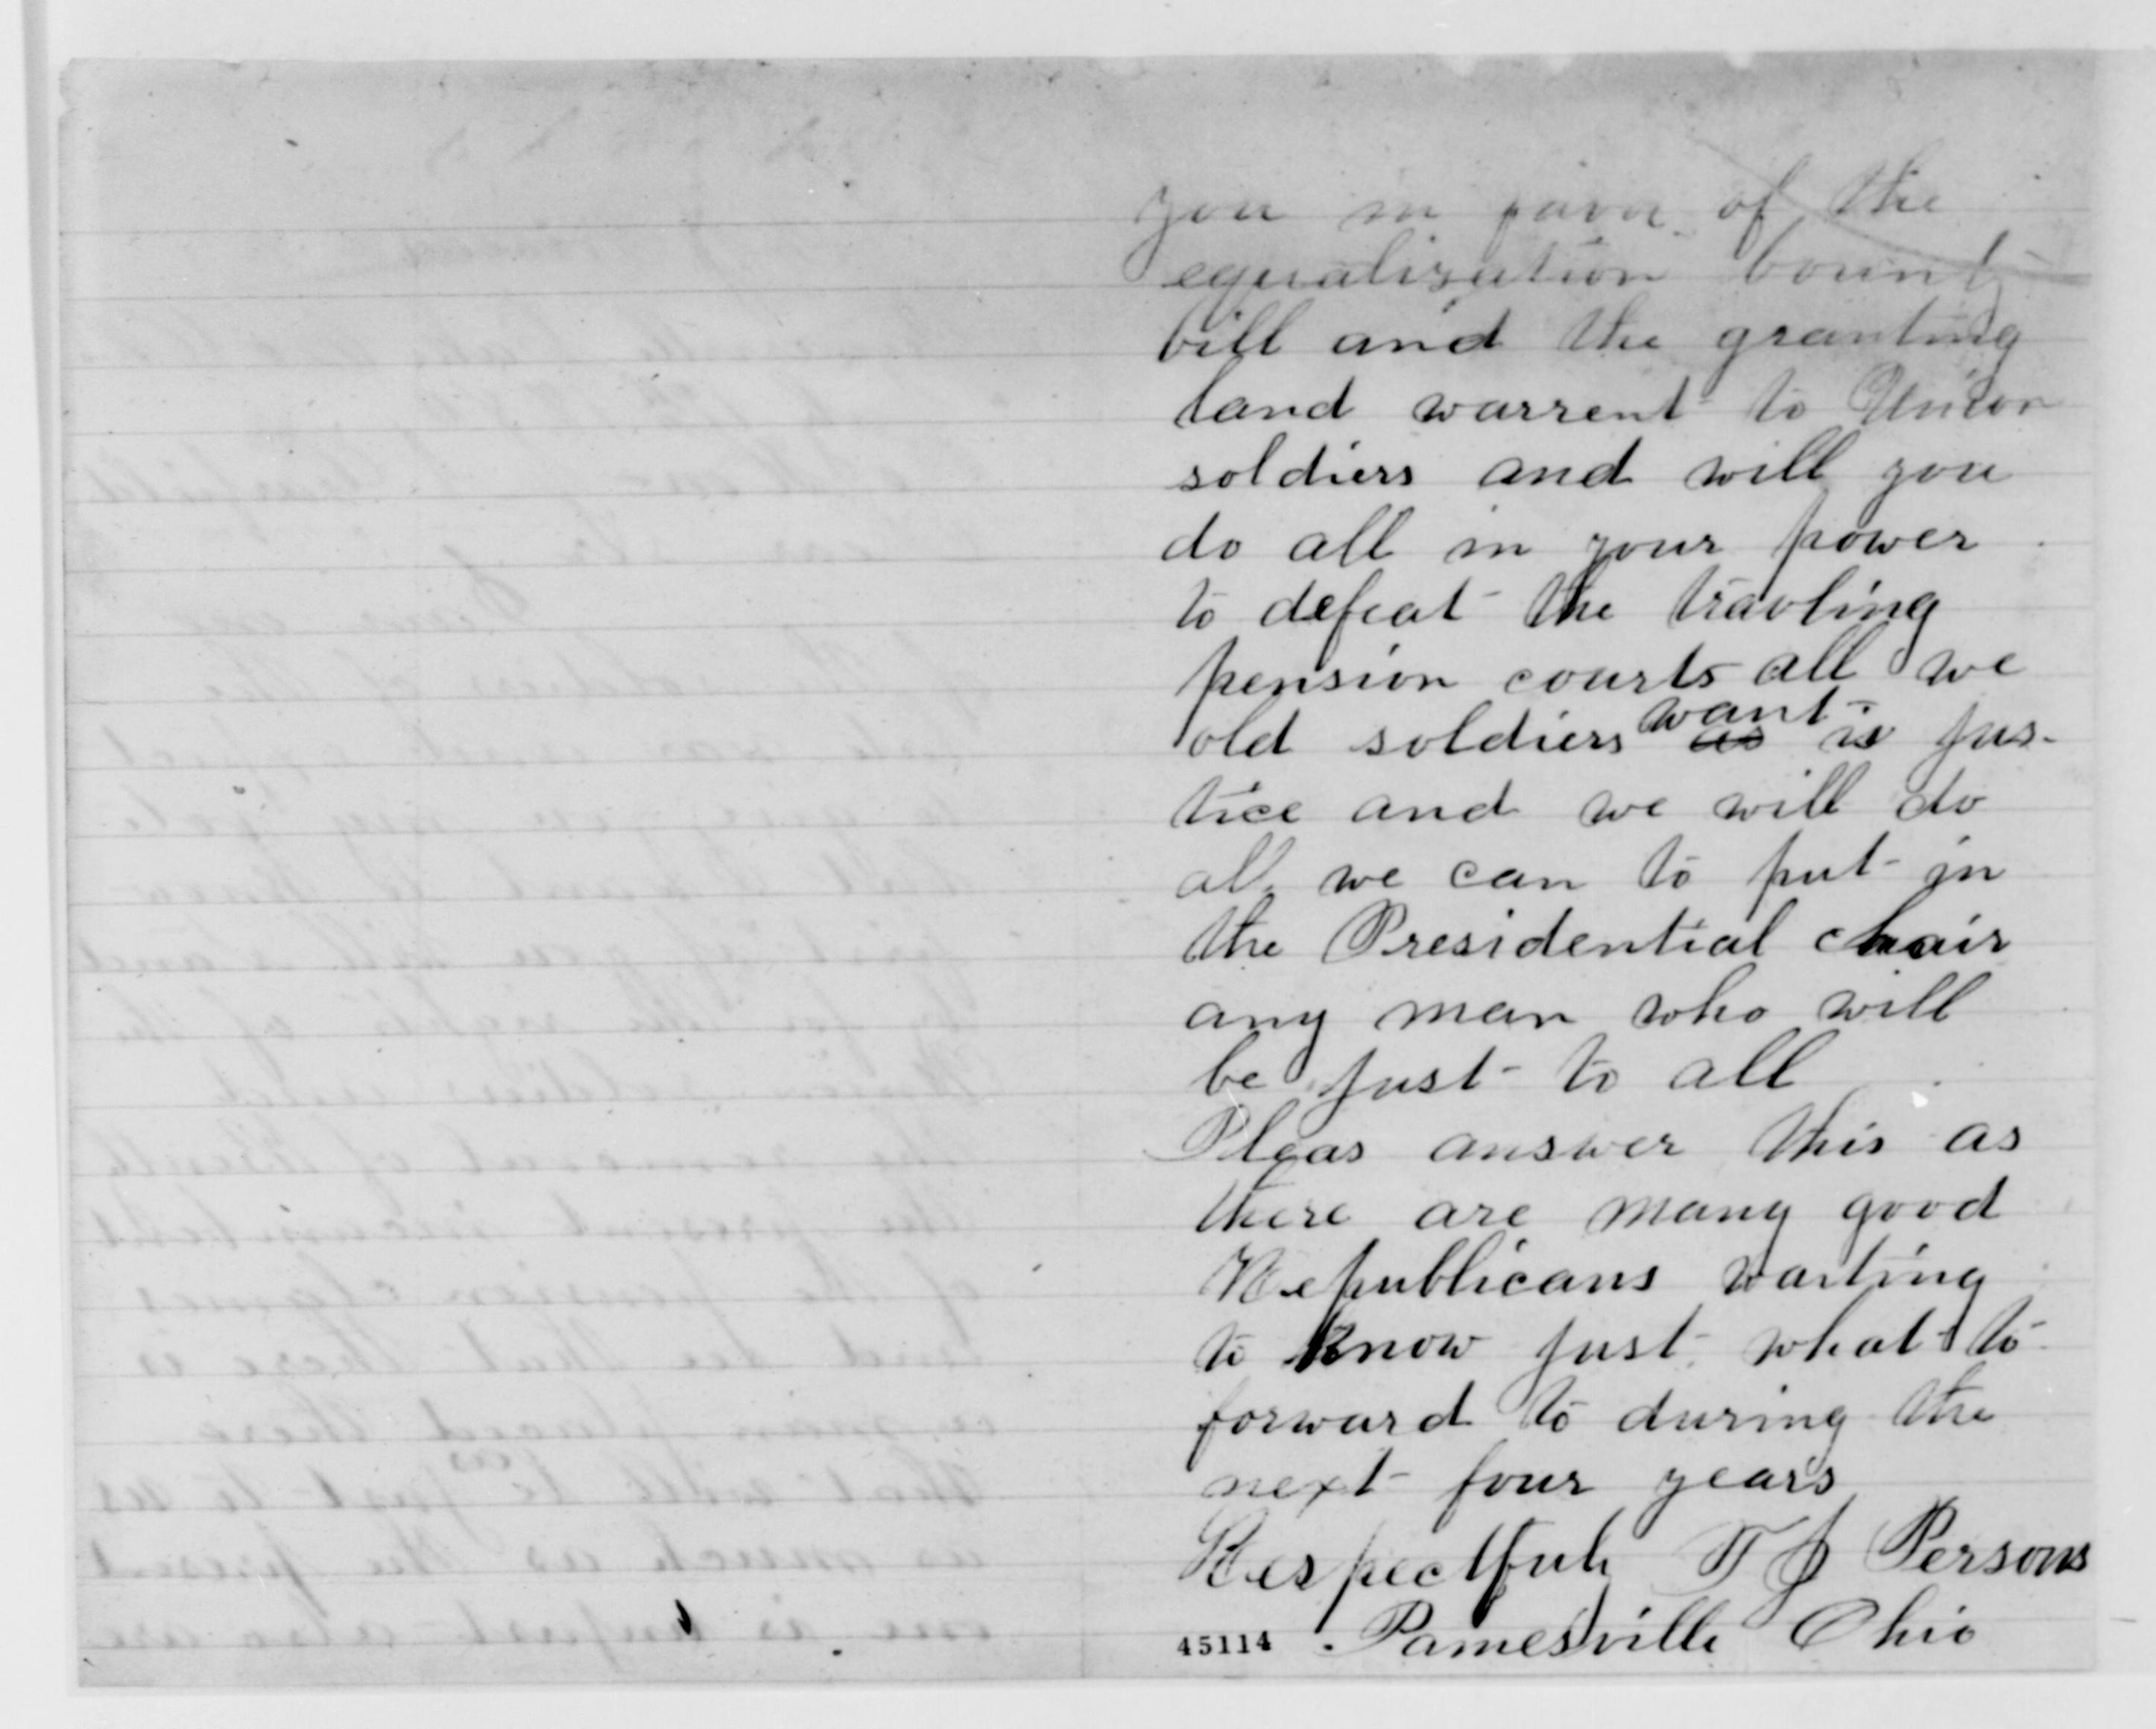 you in favor of the
equalization bounty
bill and the granting
land warrent to Union
soldiers and will you
do all in your power
to defeat the travling
pension courts all we
old soldiers want as is jus-
tice and we will do
all we can to put in
the Presidential chair
any man who will
be just to all
Pleas answer this as
there are many good
Republicans waiting
to know just what to
forward to during the
next four years
Respectfuly T J Persons
45114 Painesville Ohio